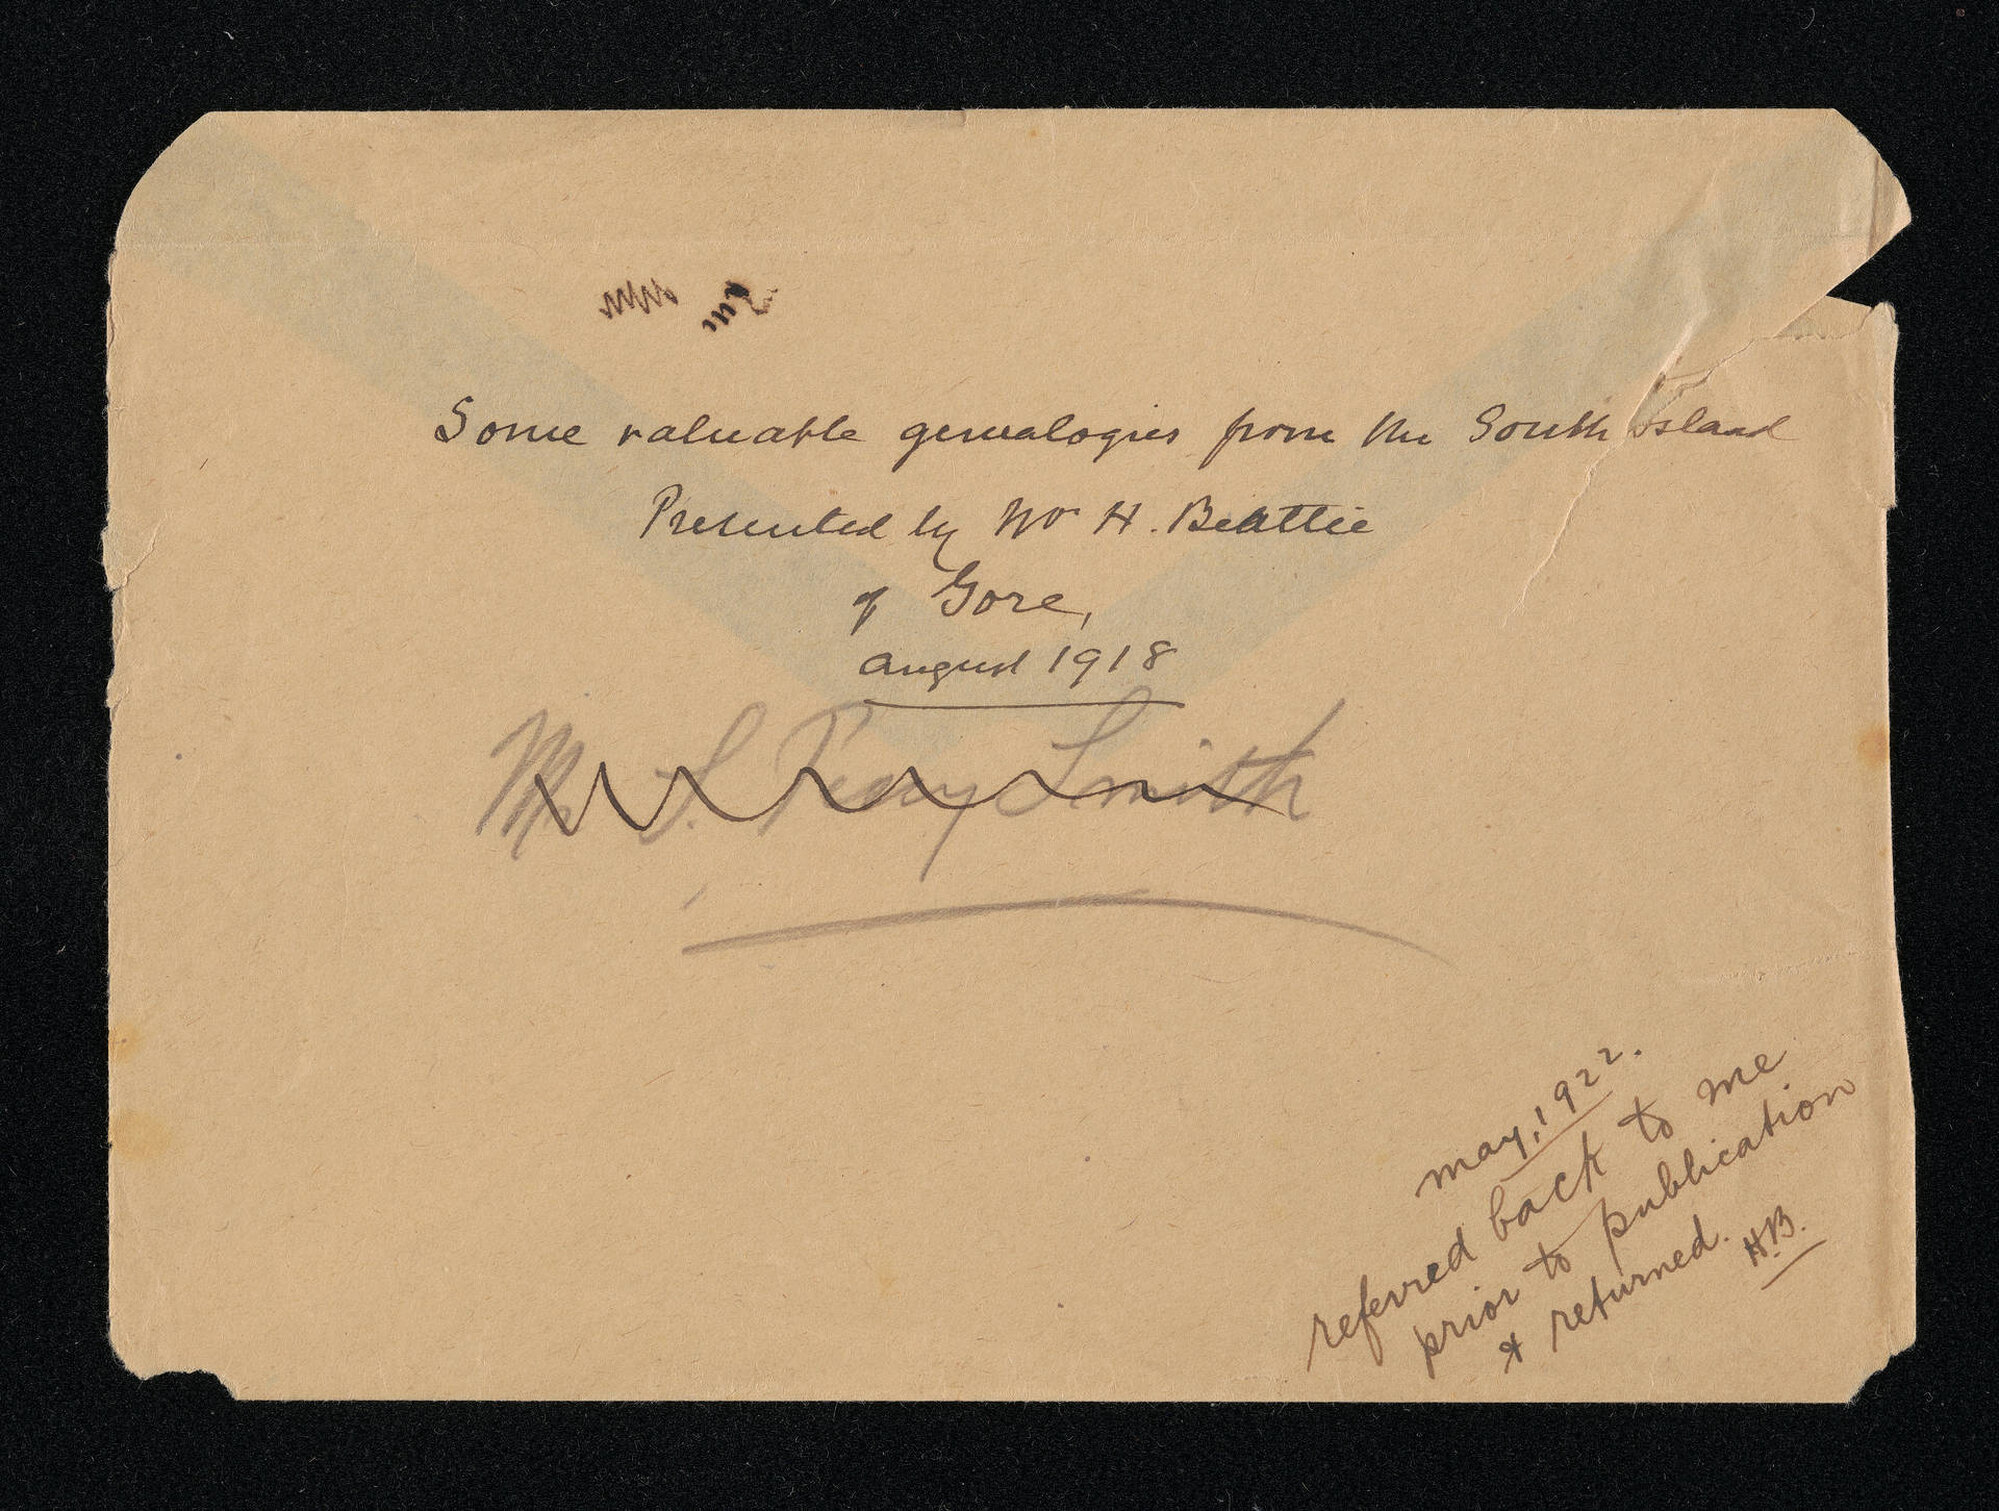 Some valuable genealogies from the South Island
Presented by Mr H. Beattie
of Gore,
August 1918
Mr S. Percy Smith
May, 1922.
referred back to me
prior to publication
& returned. H.B.